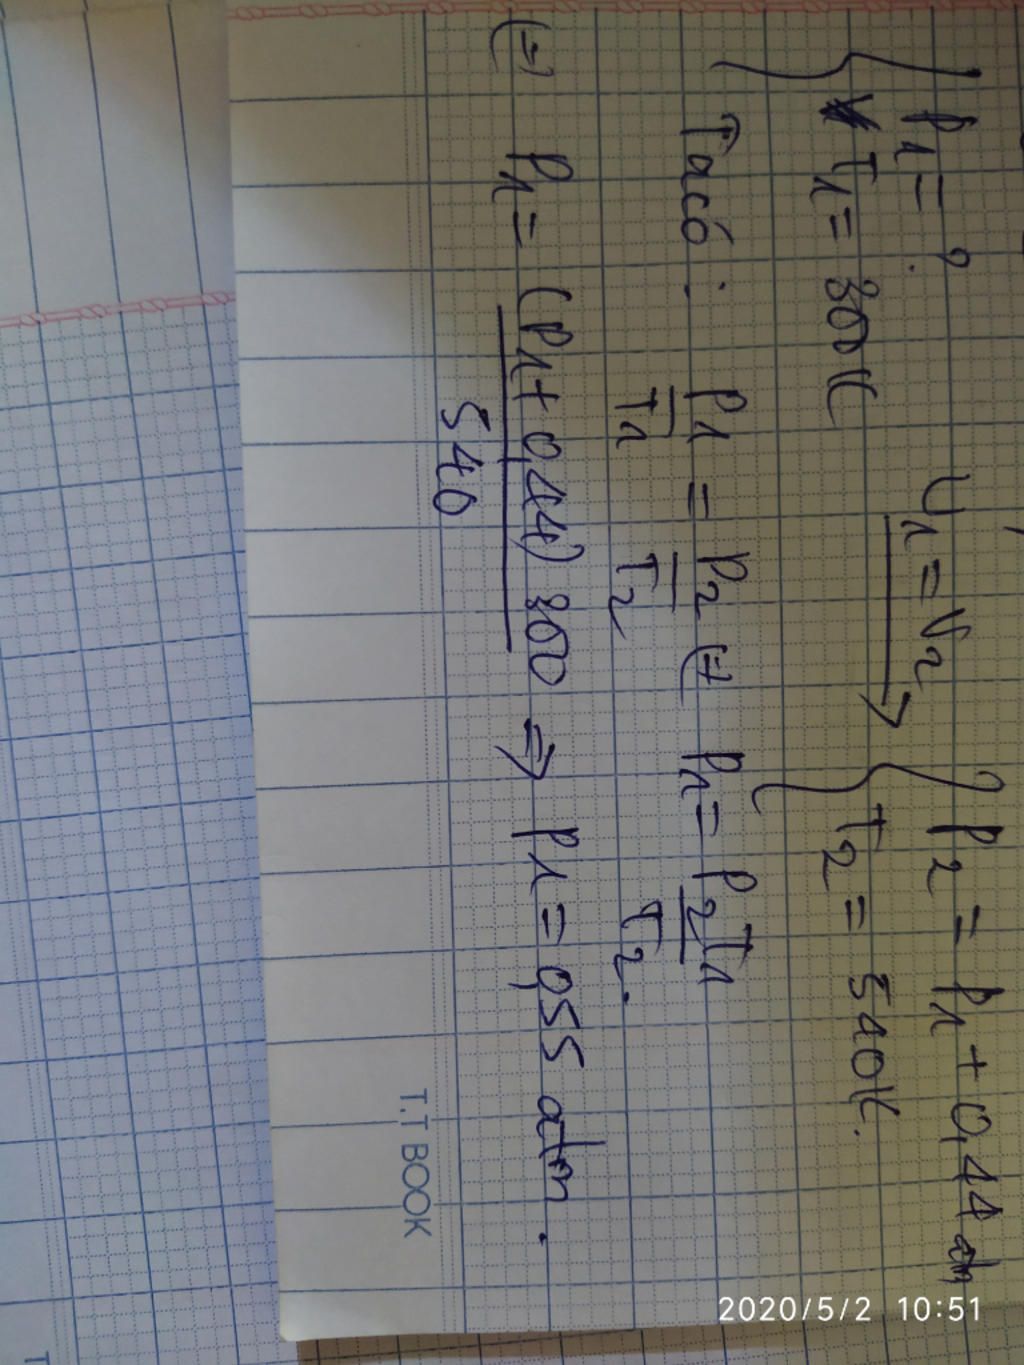 P1 = ? V1 = V2 P2 = P1 + 0,44 atm
T1 = 300K → T2 = 540K.
Ta có : P1/T1 = P2/T2 (=) P1 = P2T1/T2.
(=) P1 = (P1 + 0,44) 300/540 => P1 = 0,55 atm.
T.T BOOK
2020/5/2 10:51